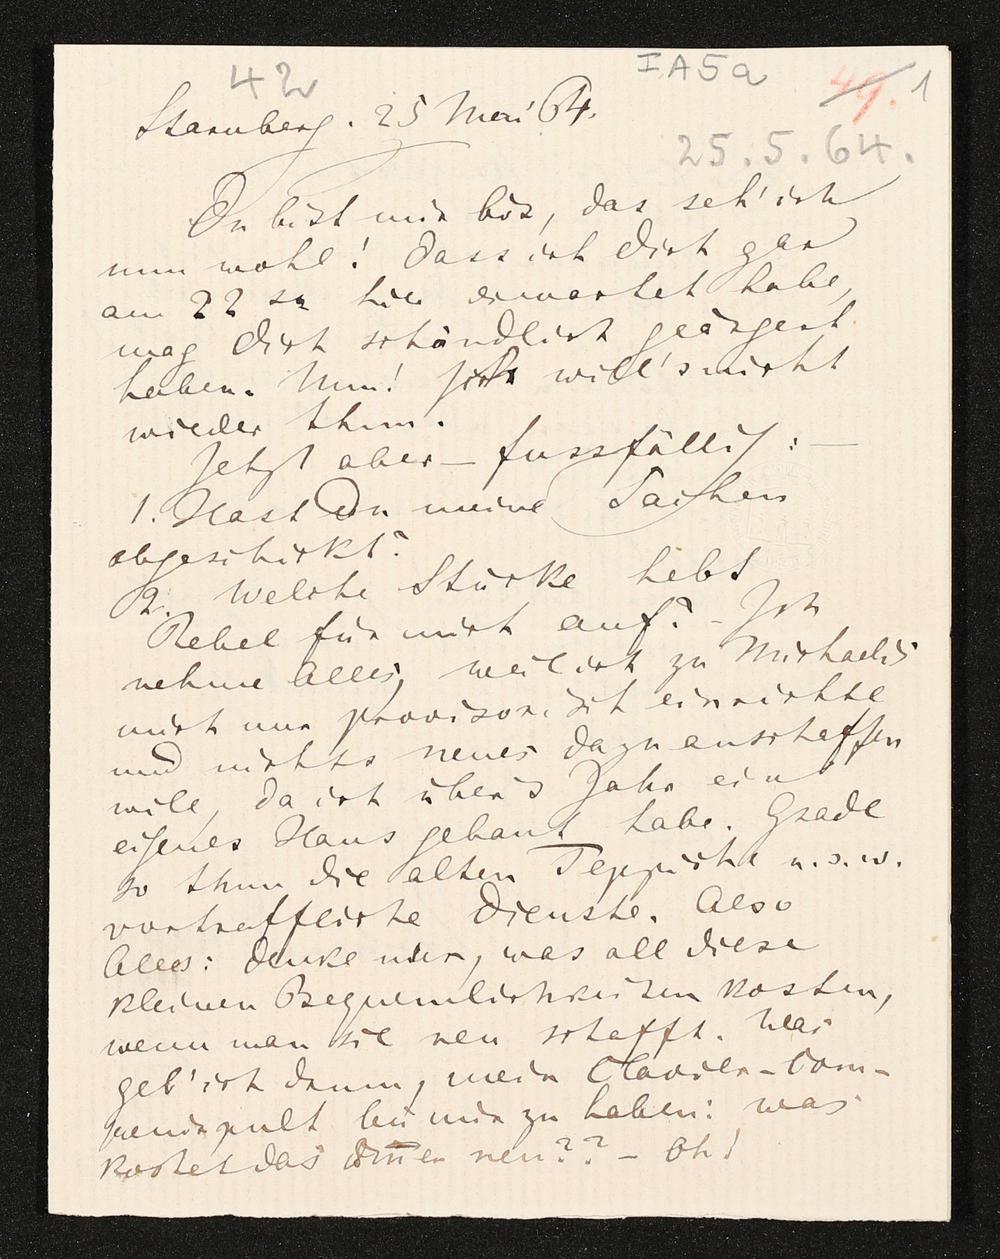 42
IA5a
49. 1
Starnberg. 25 Mai 64.
25.5.64.
Du bist mir bös, das seh' ich
nun wohl! Dass ich dich gar
am 22 sn hier erwartet habe,
mag dich schändlich geärgert
haben. Nun! Ich will's nicht
wieder thun.
Jetzt aber – fussfällig: –
1. Hast Du meine Sachen
abgeschickt?
2. Welche Stücke hebt
Rebel für mich auf? – Ich
nehme Alles, weil ich zu Michaelis
mich nur provisorisch einrichte
und nichts neues dazu anschaffen
will, da ich über's Jahr ein
eigenes Haus gebaut habe. Grade
so thun die alten Teppiche u.s.w.
vortreffliche Dienste. Also
Alles: denke nur, was all diese
kleinen Bequemlichkeiten kosten,
wenn man sie neu schafft. Was
geb' ich drum, mein Clavier-Com-
ponirpult bei mir zu haben: was
kostet das neu?? – Oh!